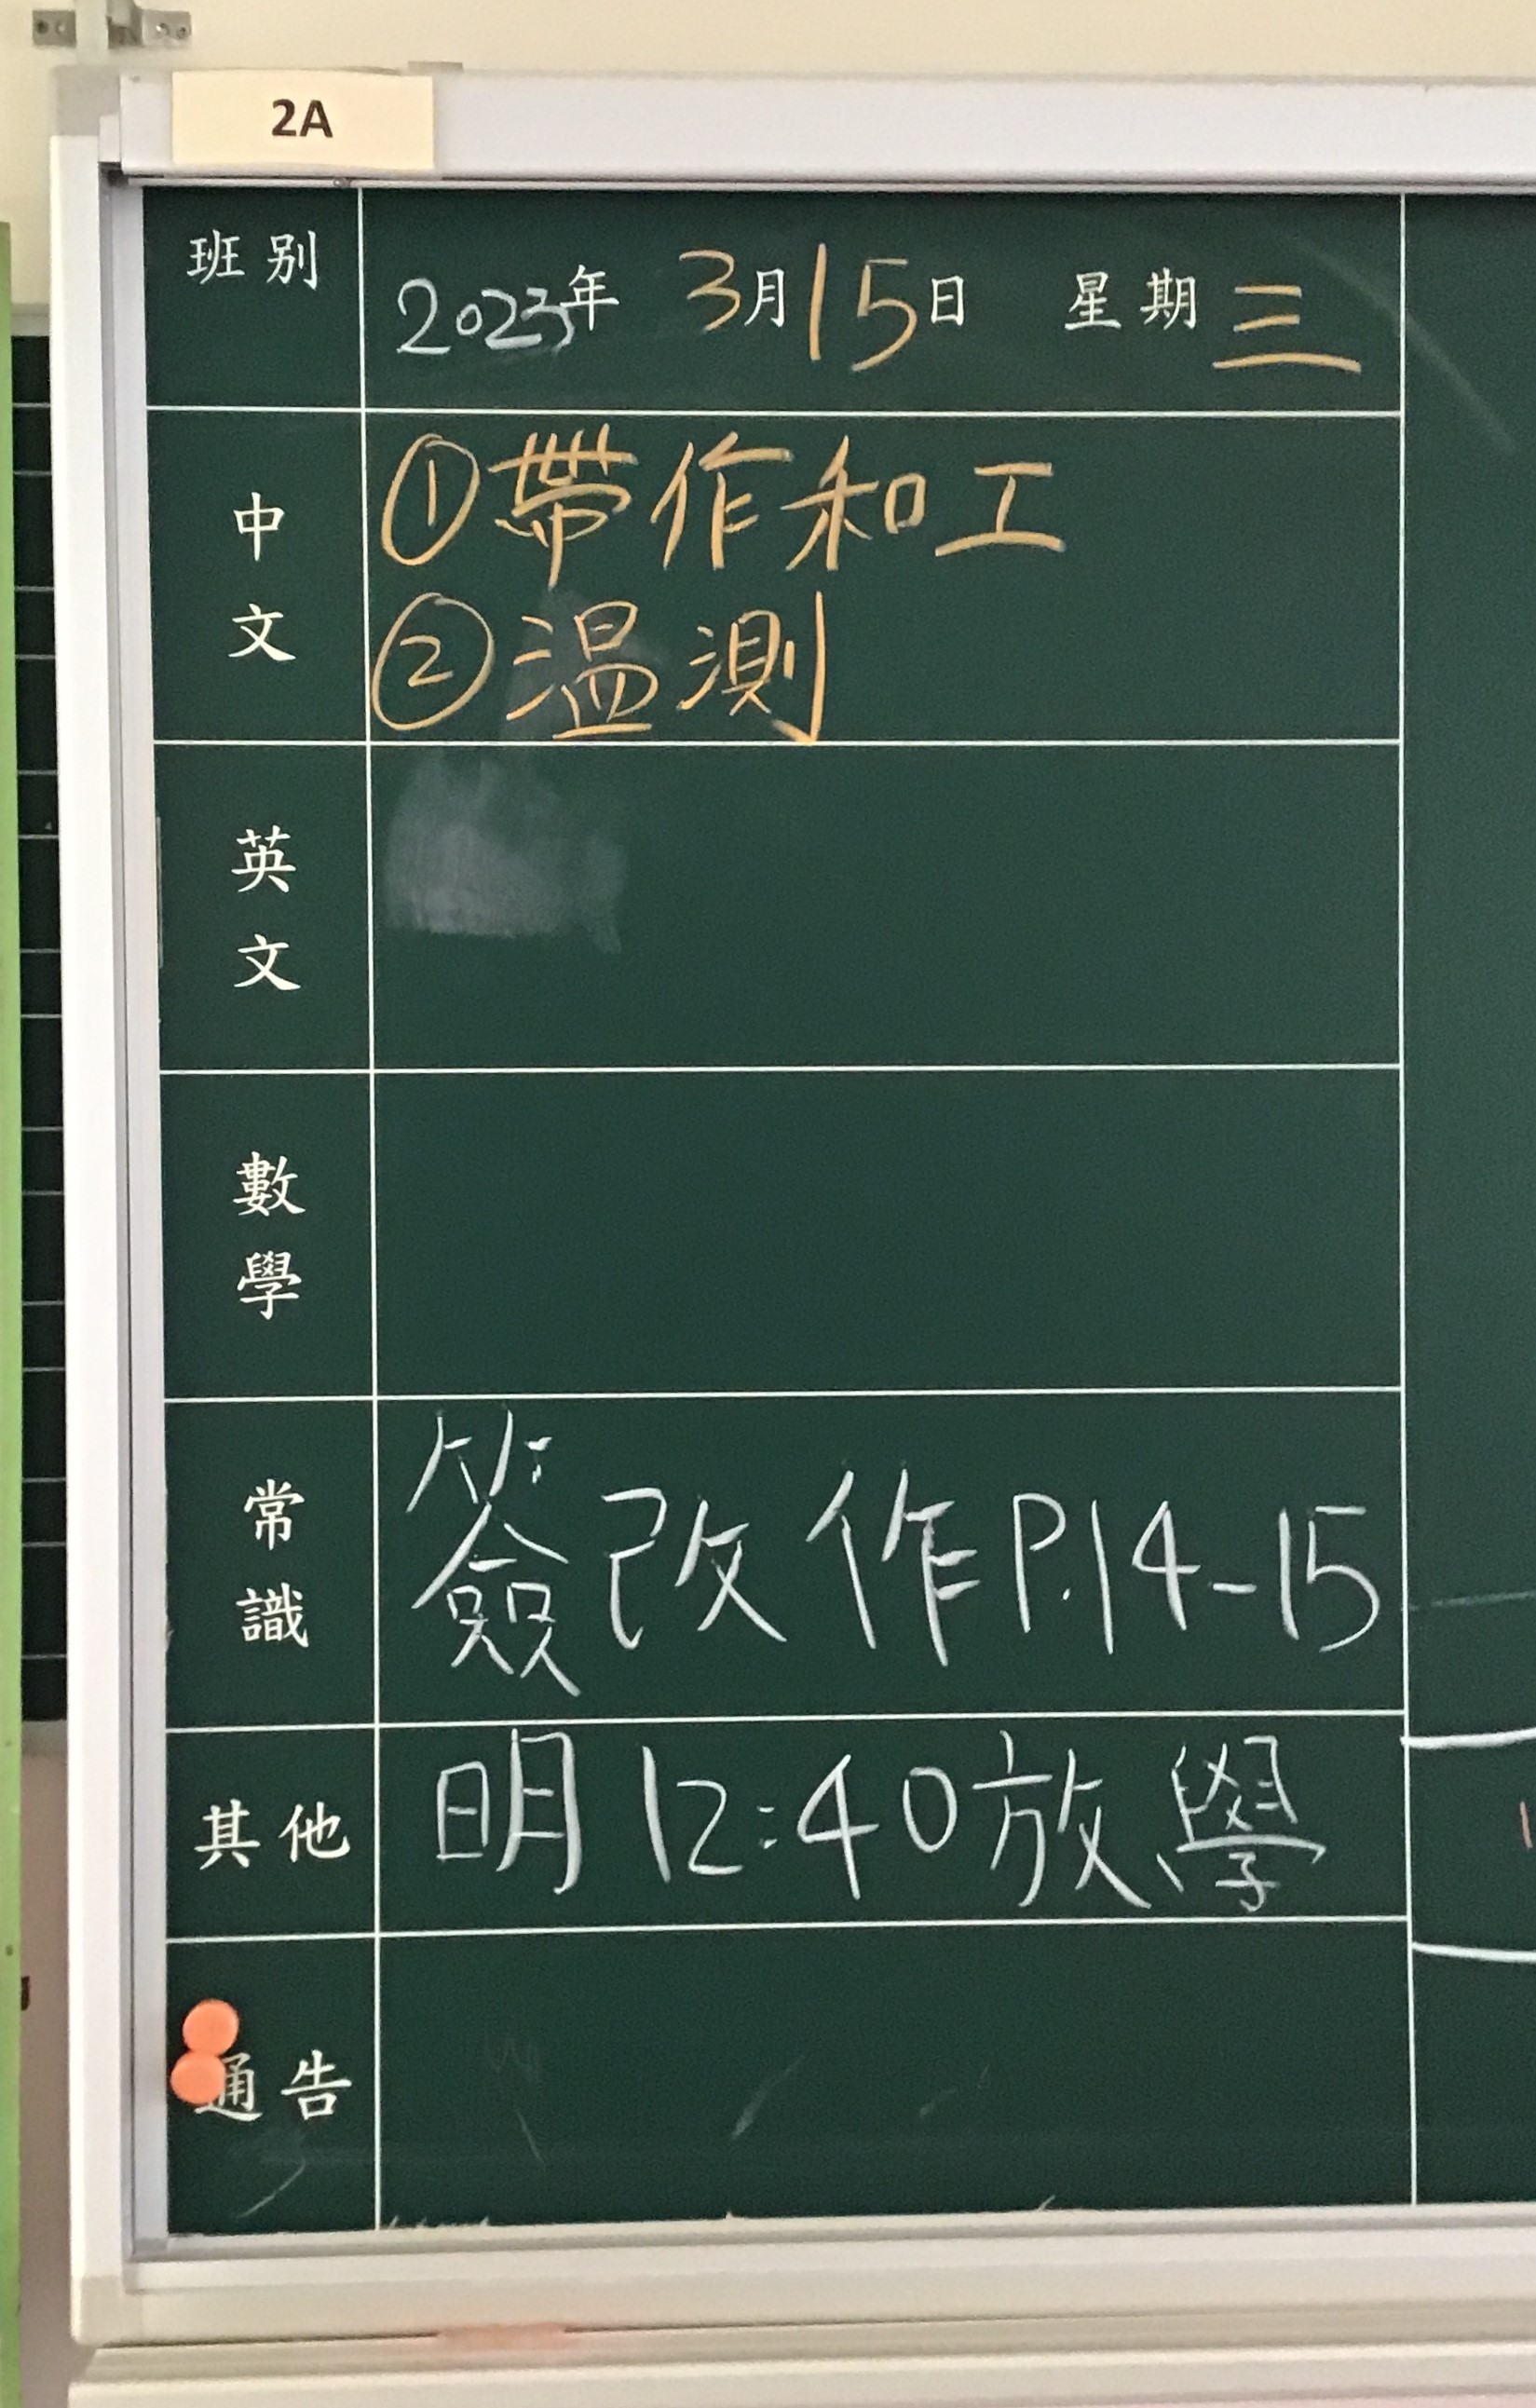 2A
班別
2023年 3月15日 星期三
中文
①帶作和工
②温測
英文
數學
常識
簽改作P.14-15
其他
明12:40放學
通告